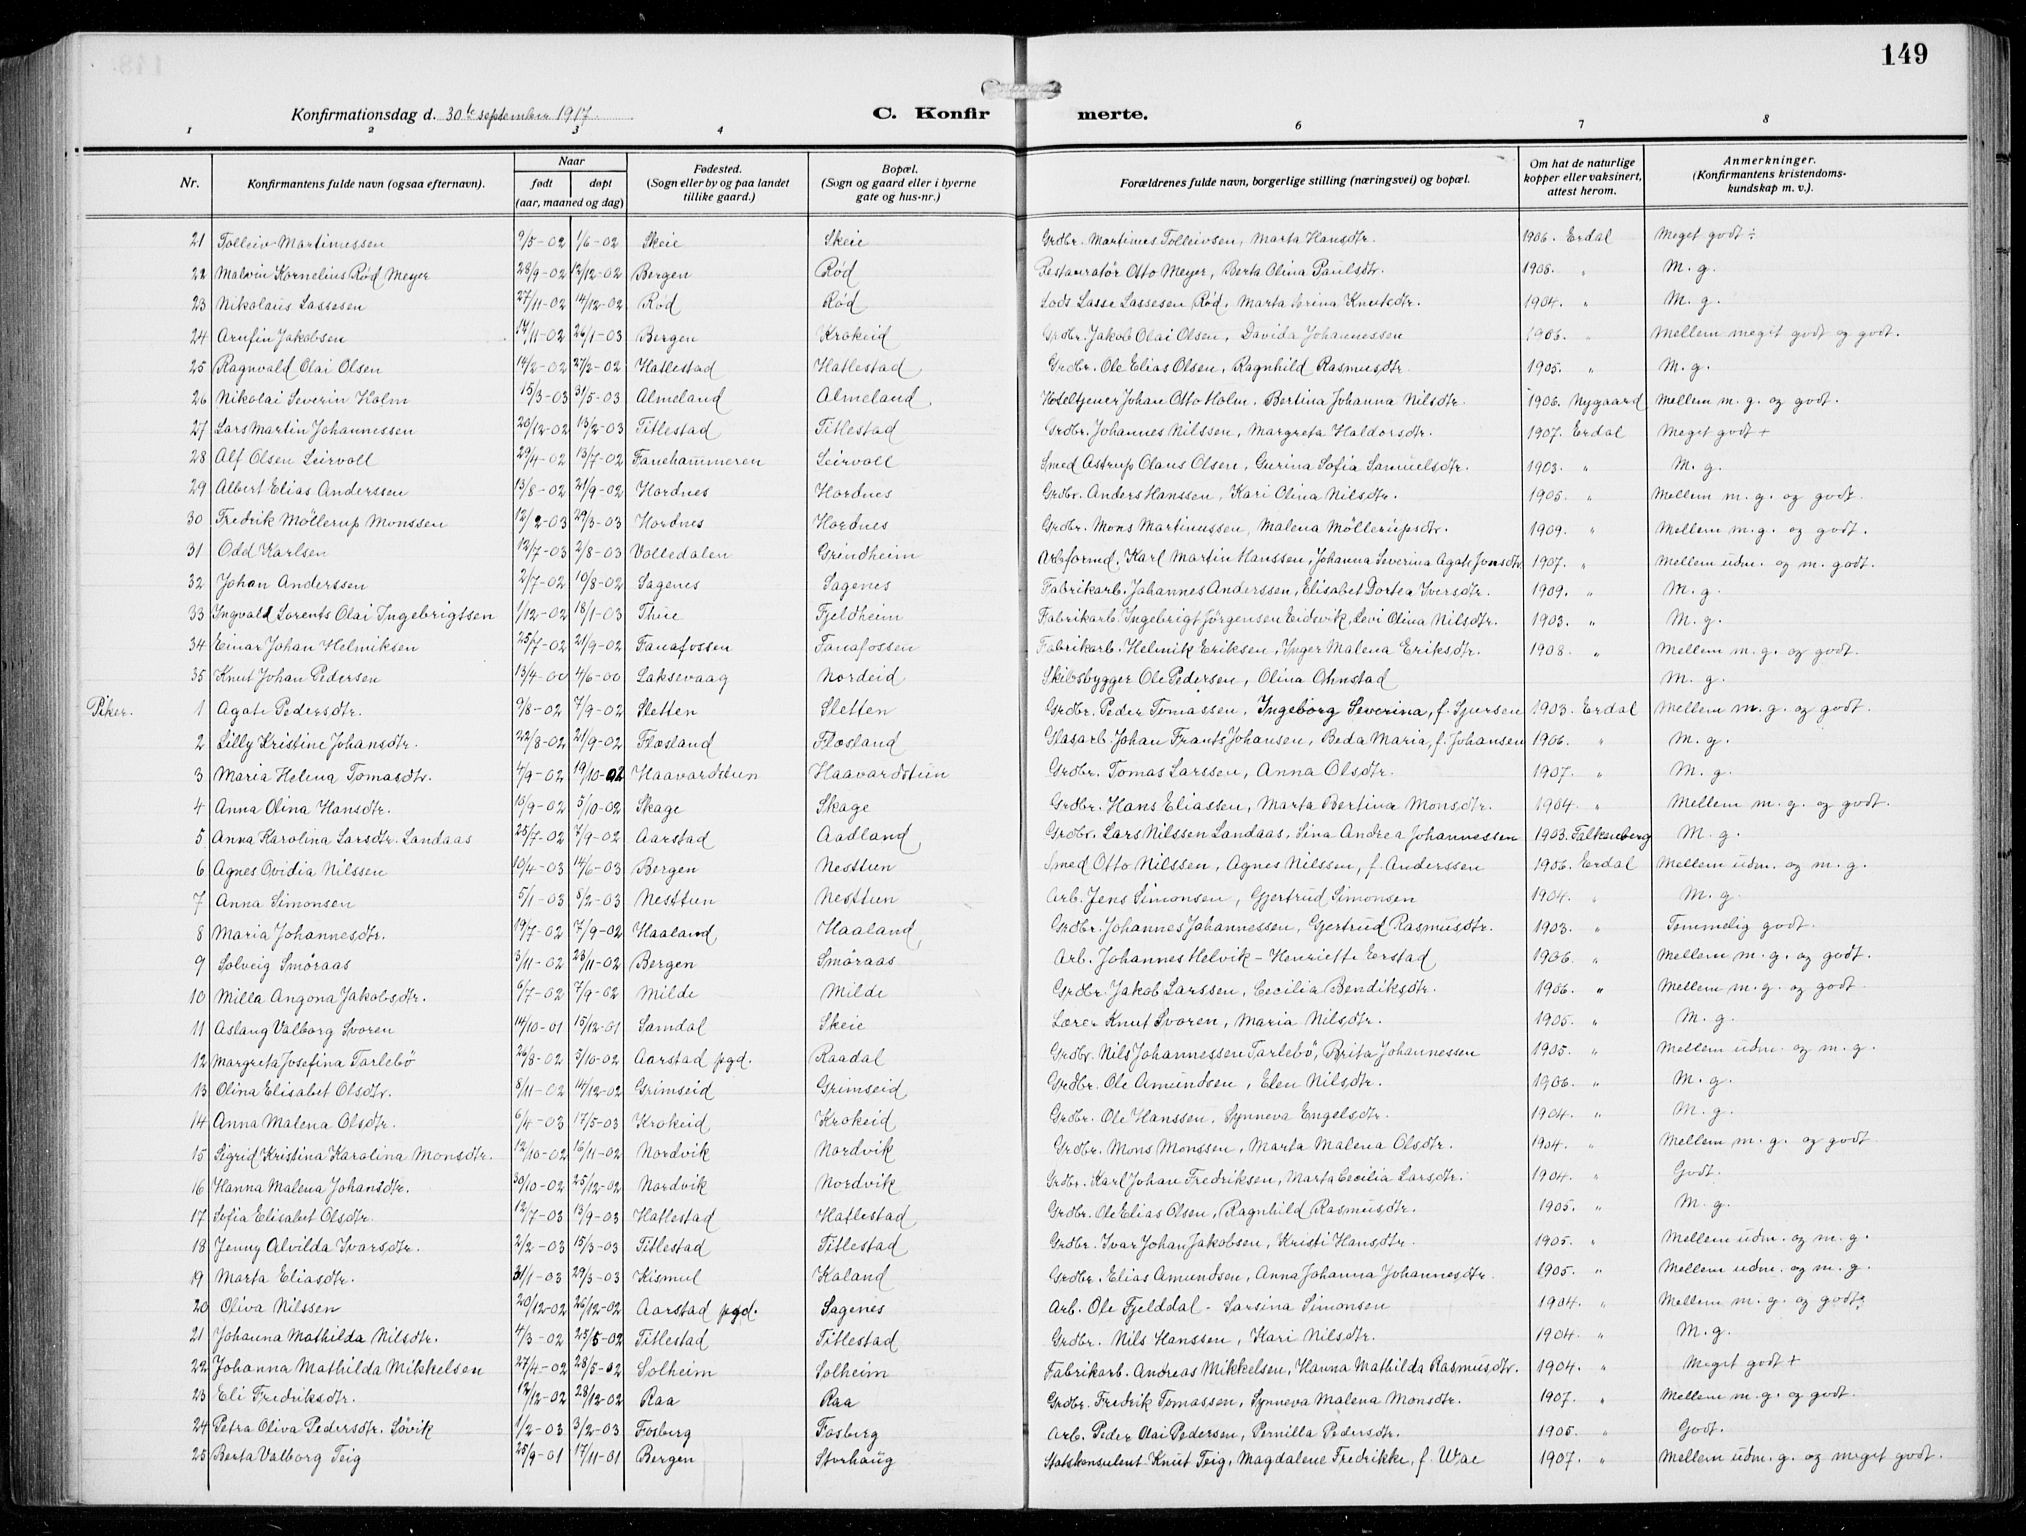 149
Konfirmationsdag d. 30te september 1917. C. Konfirmerte.
1 2 3 4 6 7 8
Nr. Konfirmantens fulde navn (ogsaa efternavn). Naar født døpt (aar, maaned og dag) Fødested. (Sogn eller by og paa landet tillike gaard.) Bopæl. (Sogn og gaard eller i byerne gate og hus-nr.) Forældrenes fulde navn, borgerlige stilling (næringsvei) og bopæl. Om hat de naturlige kopper eller vaksinert, attest herom. Anmerkninger. (Konfirmantens kristendomskundskap m. v.).
21 Tolleiv Martinussen 9/5-02 1/6-02 Skeie Skeie Grdbr. Martinus Tolleivsen, Marta Hansdtr. 1906. Erdal Meget godt ÷
22 Malvin Kornelius Rød Meyer 28/9-02 12/12-02 Bergen Rød Restauratør Otto Meyer, Berta Olina Paulsdtr. 1906. " M. g.
23 Nikolaus Lassesen 27/11-02 14/12-02 Rød Rød Lods Lasse Lassesen Rød, Marta Knutsdtr. 1904. " M. g.
24 Arnfin Jakobsen 14/11-02 26/1-03 Bergen Krokeid Grdbr. Jakob Olai Olsen, Davida Johannessen 1906. " Mellem meget godt og godt.
25 Ragnvald Olai Olsen 14/2-02 27/2-02 Hatlestad Hatlestad Grdbr. Ole Elias Olsen, Ragnhild Rasmusdtr. 1905. " M. g.
26 Nikolai Severin Holm 15/3-03 31/5-03 Almeland Almeland Hoteltjener Johan Otto Holm, Bertina Johanna Nilsdtr. 1906. Nygaard Mellem m. g. og godt.
27 Lars Martin Johannessen 20/12-02 13/2-03 Titlestad Titlestad Grdbr. Johannes Nilssen, Margreta Haldorsdtr. 1907. Erdal Meget godt +
28 Alf Olsen Leirvoll 29/4-02 13/7-02 Fanehammeren Leirvoll Smed Astrup Olaus Olsen, Gurina Sofia Samuelsdtr. 1903. " M. g.
29 Albert Elias Anderssen 13/8-02 21/9-02 Hordnes Hordnes Grdbr. Anders Hanssen, Kari Olina Nilsdtr. 1905. " Mellem m. g. og godt.
30 Fredrik Möllerup Monssen 12/2-03 29/3-03 Hordnes Hordnes Grdbr. Mons Martinussen, Malena Möllerupsdtr. 1909. " Mellem m. g. og godt.
31 Odd Karlsen 12/7-03 2/8-03 Valledalen Grindheim Arb.formd. Karl Martin Hanssen, Johanna Severina Agate Jonsdtr. 1907. " Mellem udm. og m. godt.
32 Johan Anderssen 2/7-02 10/8-02 Sagenes Sagenes Fabrikarb. Johannes Anderssen, Elisabet Dortea Iversdtr. 1909. " M. g.
33 Ingvald Lorents Olai Ingebrigtsen 1/12-02 18/1-03 Thue Fjeldheim Fabrikarb. Ingebrigt Jørgensen Eidsvik, Levi Olina Nilsdtr. 1903. " M. g.
34 Einar Johan Helmiksen 25/7-02 21/9-02 Fanafossen Fanafossen Fabrikarb. Helmik Eriksen, Inger Malena Eriksdtr. 1908. " Mellem m. g. og godt.
35 Knut Johan Pedersen 13/4-00 4/6-00 Laksevaag Nordeid Skibsbygger Ole Pedersen, Olina Ohnstad M. g.
Piker. 1 Agate Pedersdtr. 9/8-02 7/9-02 Sletten Sletten Grdbr. Peder Tomassen, Ingeborg Severina, f. Sjursen 1903. Erdal Mellem m. g. og godt.
2 Lilly Kristine Johansdtr. 22/8-02 21/9-02 Flæsland Flæsland Glasarb. Johan Frants Johansen, Beda Maria, f. Johansen 1906. " M. g.
3 Maria Helena Tomasdtr. 4/9-02 19/10-02 Haavardstun Haavardstun Grdbr. Tomas Larssen, Anna Olsdtr. 1907. " M. g.
4 Anna Olina Hansdtr. 15/9-02 5/10-02 Skage Skage Grdbr. Hans Eliassen, Marta Bertina Monsdtr. 1904. " Mellem m. g. og godt.
5 Anna Karolina Larsdtr. Landaas 25/7-02 7/9-02 Aarstad Aadland Grdbr. Lars Nilssen Landaas, Sina Andrea Johannessen 1903. Falkenberg M. g.
6 Agnes Ovidia Nilssen 10/4-03 14/6-03 Bergen Nesttun Smed Otto Nilssen, Agnes Nilssen, f. Anderssen 1906. Erdal Mellem udm. og m. g.
7 Anna Simonsen 5/1-03 8/2-03 Nesttun Nesttun Arb. Jens Simonsen, Gjertrud Simonsen 1904. " M. g.
8 Maria Johannesdtr. 19/7-02 7/9-02 Haaland Haaland Grdbr. Johannes Johannessen, Gjertrud Rasmusdtr. 1903. " Temmelig godt.
9 Solveig Smöraas 3/11-02 23/11-02 Bergen Smöraas Arb. Johannes Helvik - Henriette Erstad 1906. " Mellem m. g. og godt.
10 Milla Angona Jakobsdtr. 6/7-02 7/9-02 Milde Milde Grdbr. Jakob Larssen, Cecilia Bendiksdtr. 1906. " Mellem m. g. og godt
11 Aslaug Valborg Svoren 14/10-01 15/12-01 Samdal Skeie Lærer Knut Svoren, Maria Nilsdtr. 1905. " M. g.
12 Margreta Josefina Tarlebö 26/8-02 5/10-02 Aarstad pgd. Raadal Grdbr. Nils Johannessen Tarlebö, Brita Johannessen 1905. " Mellem udm. og m. g.
13 Olina Elisabet Olsdtr. 8/11-02 14/12-02 Grimseid Grimseid Grdbr. Ole Amundsen, Elen Nilsdtr. 1906. " M. g.
14 Anna Malena Olsdtr. 6/4-03 17/5-03 Krokeid Krokeid Grdbr. Ole Hanssen, Synneva Engelsdtr. 1904. " M. g.
15 Sigrid Kristina Karolina Monsdtr. 12/10-02 16/11-02 Nordvik Nordvik Grdbr. Mons Monssen, Marta Malena Olsdtr. 1904. " Mellem m. g. og godt
16 Hanna Malena Johansdtr. 30/10-02 25/12-02 Nordvik Nordvik Grdbr. Karl Johan Fredriksen, Marta Cecilia Larsdtr. 1904. " Godt.
17 Sofia Elisabet Olsdtr. 12/7-03 13/9-03 Hatlestad Hatlestad Grdbr. Ole Elias Olsen, Ragnhild Rasmusdtr. 1905. " M. g.
18 Jenny Alvilda Ivarsdtr. 2/2-03 15/3-03 Titlestad Titlestad Grdbr. Ivar Johan Jakobsen, Kristi Hansdtr. 1905. " Mellem udm. og m. g.
19 Marta Eliasdtr. 31/1-03 29/3-03 Kismul Kaland Grdbr. Elias Amundsen, Anna Johanna Johannesdtr. 1905. " Mellem udm. og m. g.
20 Oliva Nilssen 20/12-02 26/12-02 Aarstad pgd. Sagenes Arb. Ole Fjelddal - Sarsina Simonsen 1904. " Mellem m. g. og godt.
21 Johanna Mathilda Nilsdtr. 4/3-02 25/5-02 Titlestad Titlestad Grdbr. Nils Hanssen, Kari Nilsdtr. 1904. " M. g.
22 Johanna Mathilda Mikkelsen 27/4-02 28/5-02 Solheim Solheim Fabrikarb. Andreas Mikkelsen, Hanna Mathilda Rasmusdtr. 1904. " Meget godt +
23 Eli Fredriksdtr. 12/12-02 28/12-02 Raa Raa Grdbr. Fredrik Tomassen, Synneva Malena Monsdtr. 1907. " Mellem m. g. og godt.
24 Petra Oliva Pedersdtr. Søvik 1/2-03 3/2-03 Fosberg Fosberg Arb. Peder Olai Pedersen, Pernilla Pedersdtr. 1905. " Godt.
25 Berta Valborg Teig 25/9-01 17/11-01 Bergen Storhaug Statskonsulent Knut Teig, Magdalene Fredrikke, f. Wae 1907. " Mellem udm. g. og meget godt.